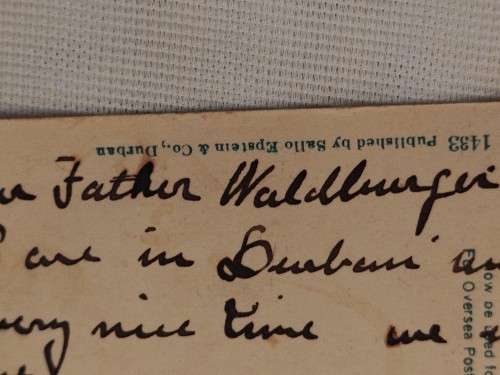 1433 Published by Sallo Epstein & Co., Durban
Father Waldburger
are in Durban an
very nice time we
Oversea Post